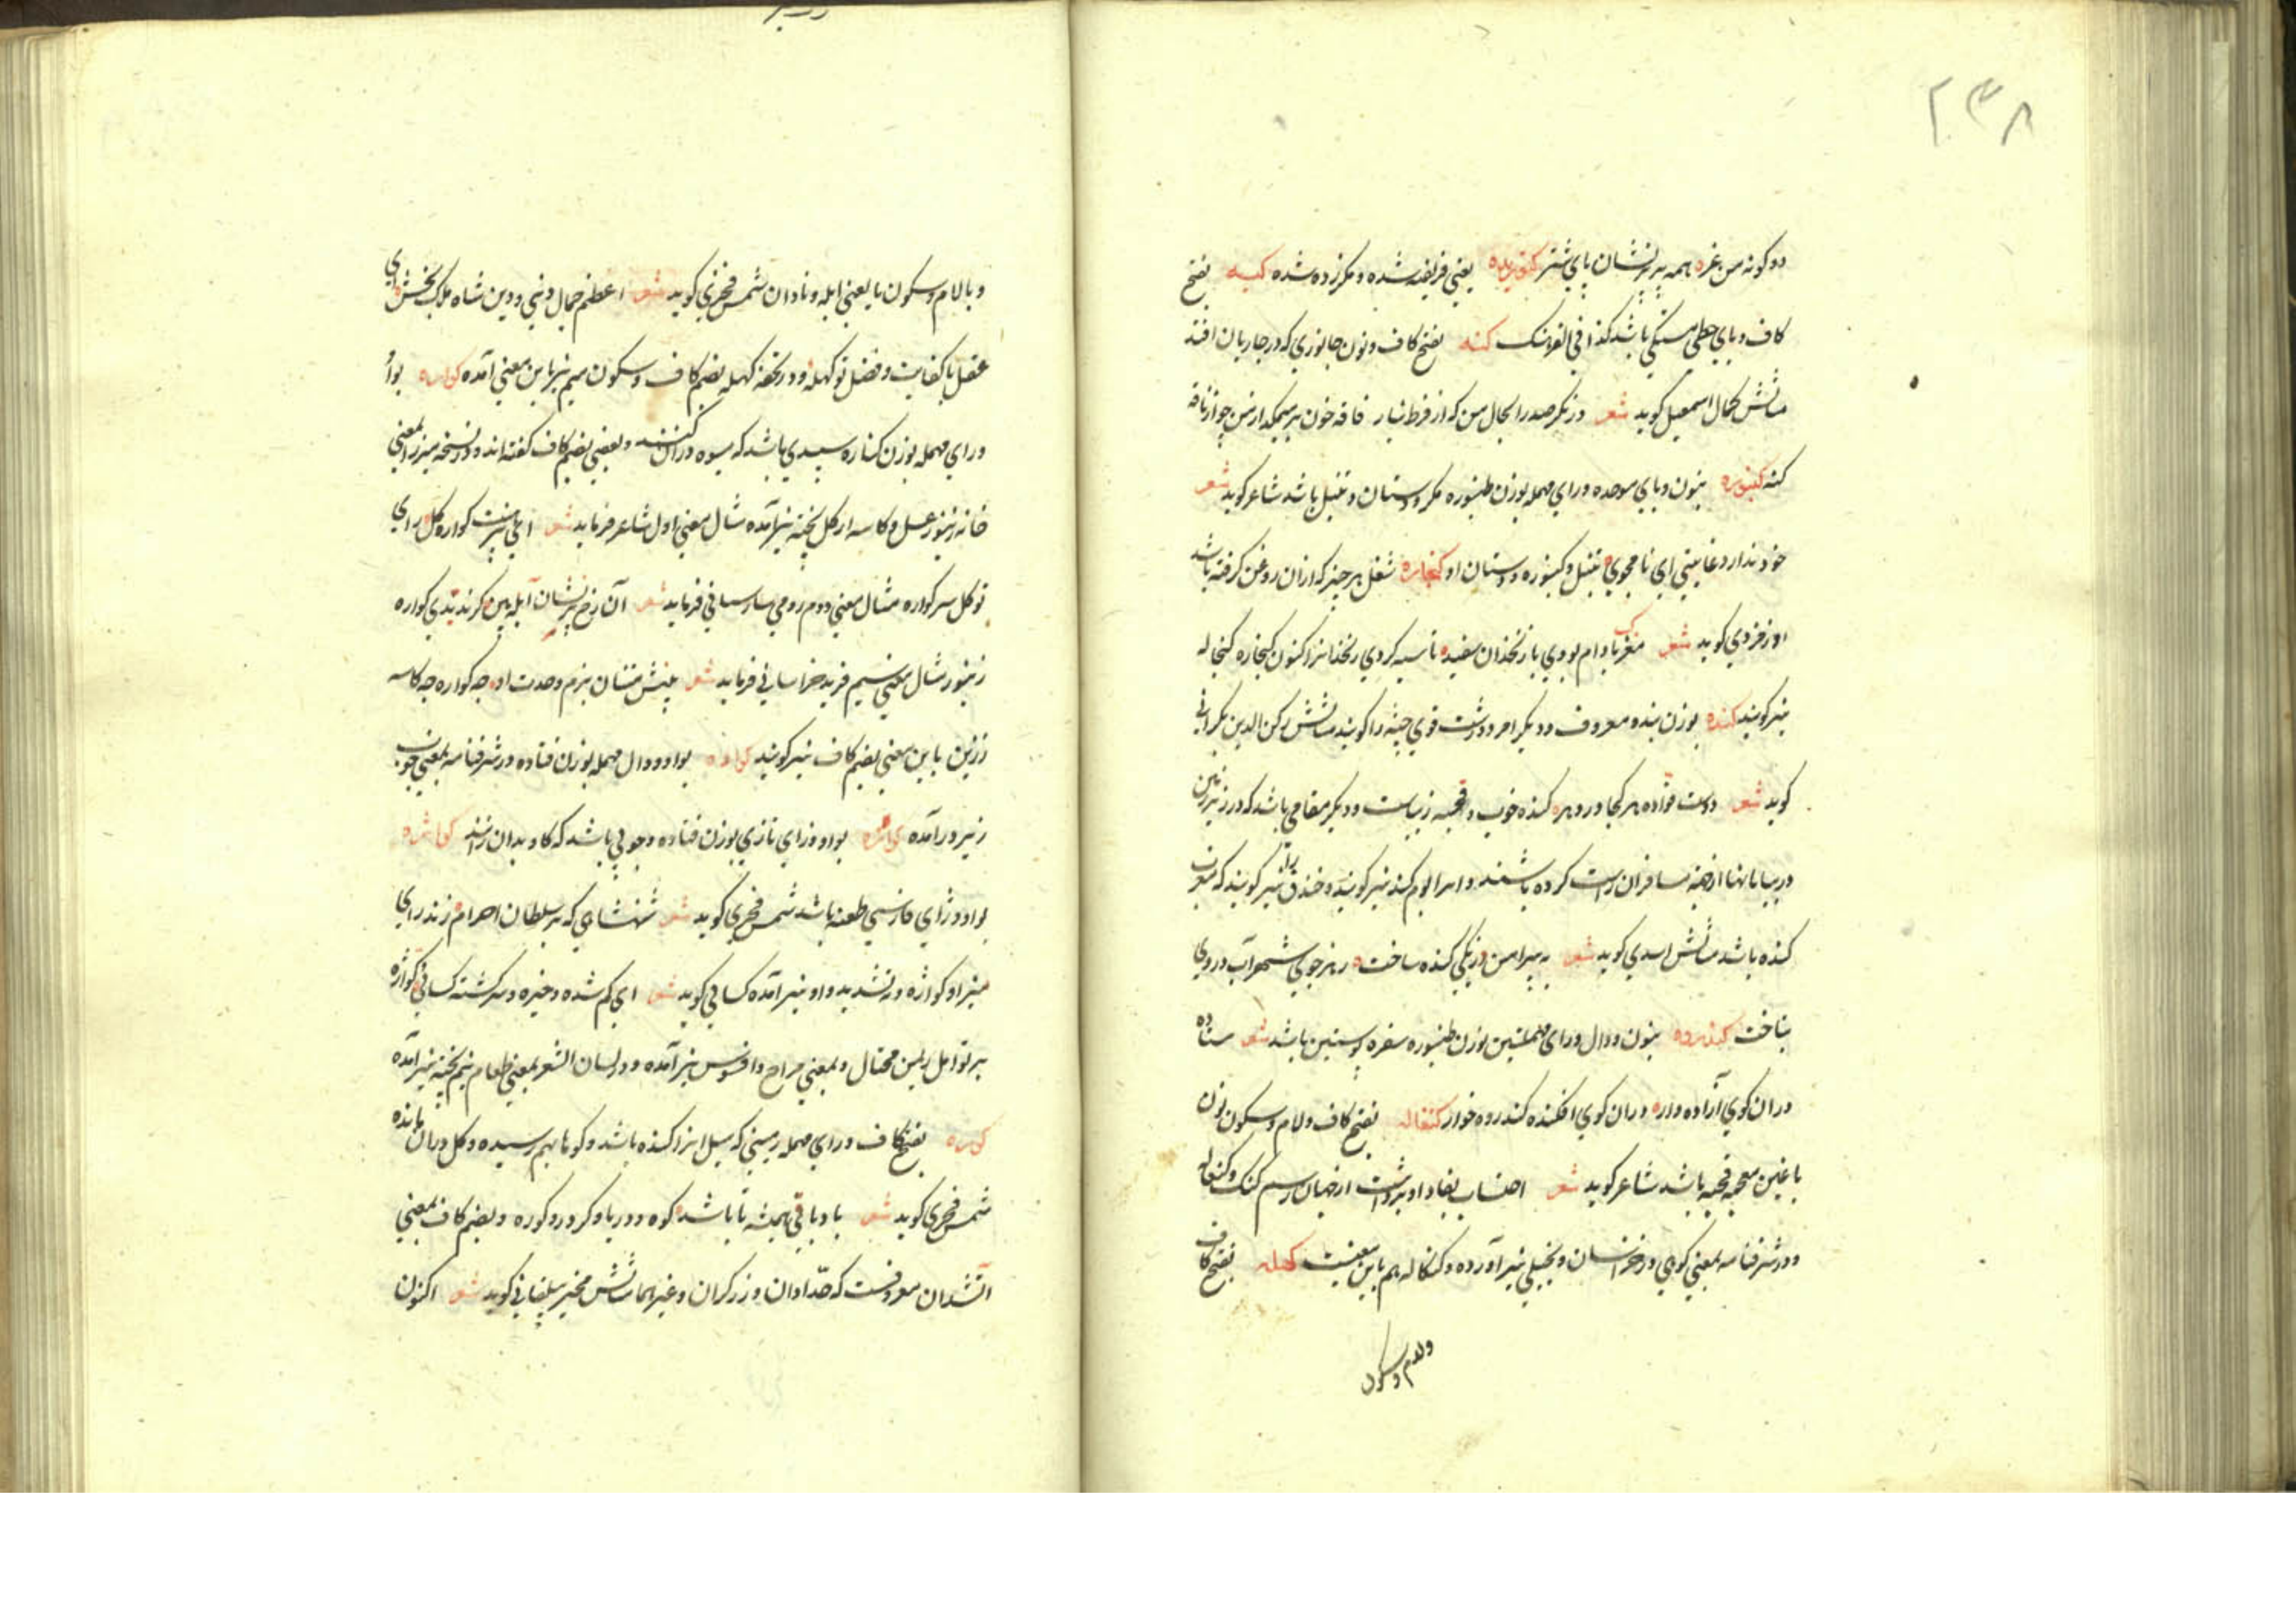 ۲۳۸
دو کونه من غره همه پر نشان پای شتر کنوریده یعنی فریفته شده و مکر زده شده کنبه بفتح
کاف و بای حطی باشد کذا فی الفرهنک کنه بفتح کاف و نون جانوری که در چارپایان افتد
مثالش کمال اسمعیل کوید شعر دزنکر صدر الحال من که از فرط نیاز فاقه خون بر میمکد از من چو از ناقه
کنه کنبوره بنون و بای موحده و رای مهمله بوزن طنبوره مکر و دستان و تنبل باشد شاعر کوید شعر
خود ندارد غایتی ای نامجوی تنبل و کنبوره و دستان او کنجاره ثفل هر چیز که ازان روغن کرفته باشد
اورفزدی کوید شعر مغز بادام بودی با زنخدان سفید تا سیه کردی زنخدانرا کنون کنجاره کنجاله
نیز کویند کنده بوزن بنده معروف و دیکر امرد درشت قوی جثه را کویند مثالش رکن الدین بکرانی
کوید شعر دست قواده هر کجا در دهر کنده خوب و قحبه زیباست و دیکر مقامی باشد که در زیر زمین
در بیابانها از جهة مسافران راست کرده باشند و انرا بوم کند نیز کویند و خندق را نیز کویند که معرب
کنده باشد مثالش اسدی کوید شعر به پیرامن دز یکی کنده ساخت ز هر جوی شهر آب در وی
بتاخت کندوره بنون و دال و رای مهملتین بوزن طنبوره سفره پوستین باشد شعر ستاده
دران کوی آزاده وار دران کوی افکنده کندروه خوار کنغاله بفتح کاف و لام و سکون نون
با غین معجمه قحبه باشد شاعر کوید شعر احتساب بغداد و برداشت از جهان رسم کنک و کنغاله
و در شرفنامه بمعنی کوهی در خراسان و بخیلی نیز آورده و کنکاله هم باین معنیست کهله بفتح کاف
و لام و سکون
و با لام و سکون ها یعنی ابله و نادان شمس فخری کوید شعر اعظم جمال دنیی و دین شاه ملک بخش ای
عقل با کفایت و فضل تو کهله و در تحفه کهمله بضم کاف و سکون میم نیز باین معنی آمده کواره بواو
و رای مهمله بوزن کناره سبدی باشد که میوه دران کنند و بعضی بضم کاف کفته اند و در نسخه میرزا بمعنی
خانه زنبور عسل و کاسه از کل پخته نیز آمده مثال معنی اول شاعر فرماید شعر کواره کل برای
تو کل سر کواره مثال معنی دوم رومی سارسانی فرماید شعر آن رخ پر نشان آبله بین کر ندیدی کواره
زنبور مثال معنی سیم فرید خراسانی فرماید شعر پیش مستان بزم وحدت او چه کواره چه کاسه
زرین باین معنی بضم کاف نیز کویند کواده بواو و دال مهمله بوزن فتاده در شرفنامه بمعنی چوب
زیر در آمده کوازه بواو و زای تازی بوزن فتاده و چوبی باشد که کاو بدان زنند کواژه
بواو و ژای فارسی طعنه باشد شمس فخری کوید شعر شهنشاهی که بر سلطان اجرام زند رای
منیر او کواژه و بتشدید واو نیز آمده کسائی کوید شعر ای کم شده و خیره و سرکشته کسائی کواژه
بر تو امل ریمن محتال و بمعنی مزاح و افسوس نیز آمده و در لسان الشعر بمعنی طعام نیم پخته نیز آمده
کوره بفتح کاف و رای مهمله زمینی که سیل انرا کنده باشد و کوها بهم رسیده و کل دران مانده
شمس فخری کوید شعر بادا باقی همیشه تا باشد کوه و دریا و کردر و کوره و بضم کاف بمعنی
آتشدان معروفست که حدادان و زرکران و غیرهما مثالش مخیر بیلقانی کوید شعر اکنون